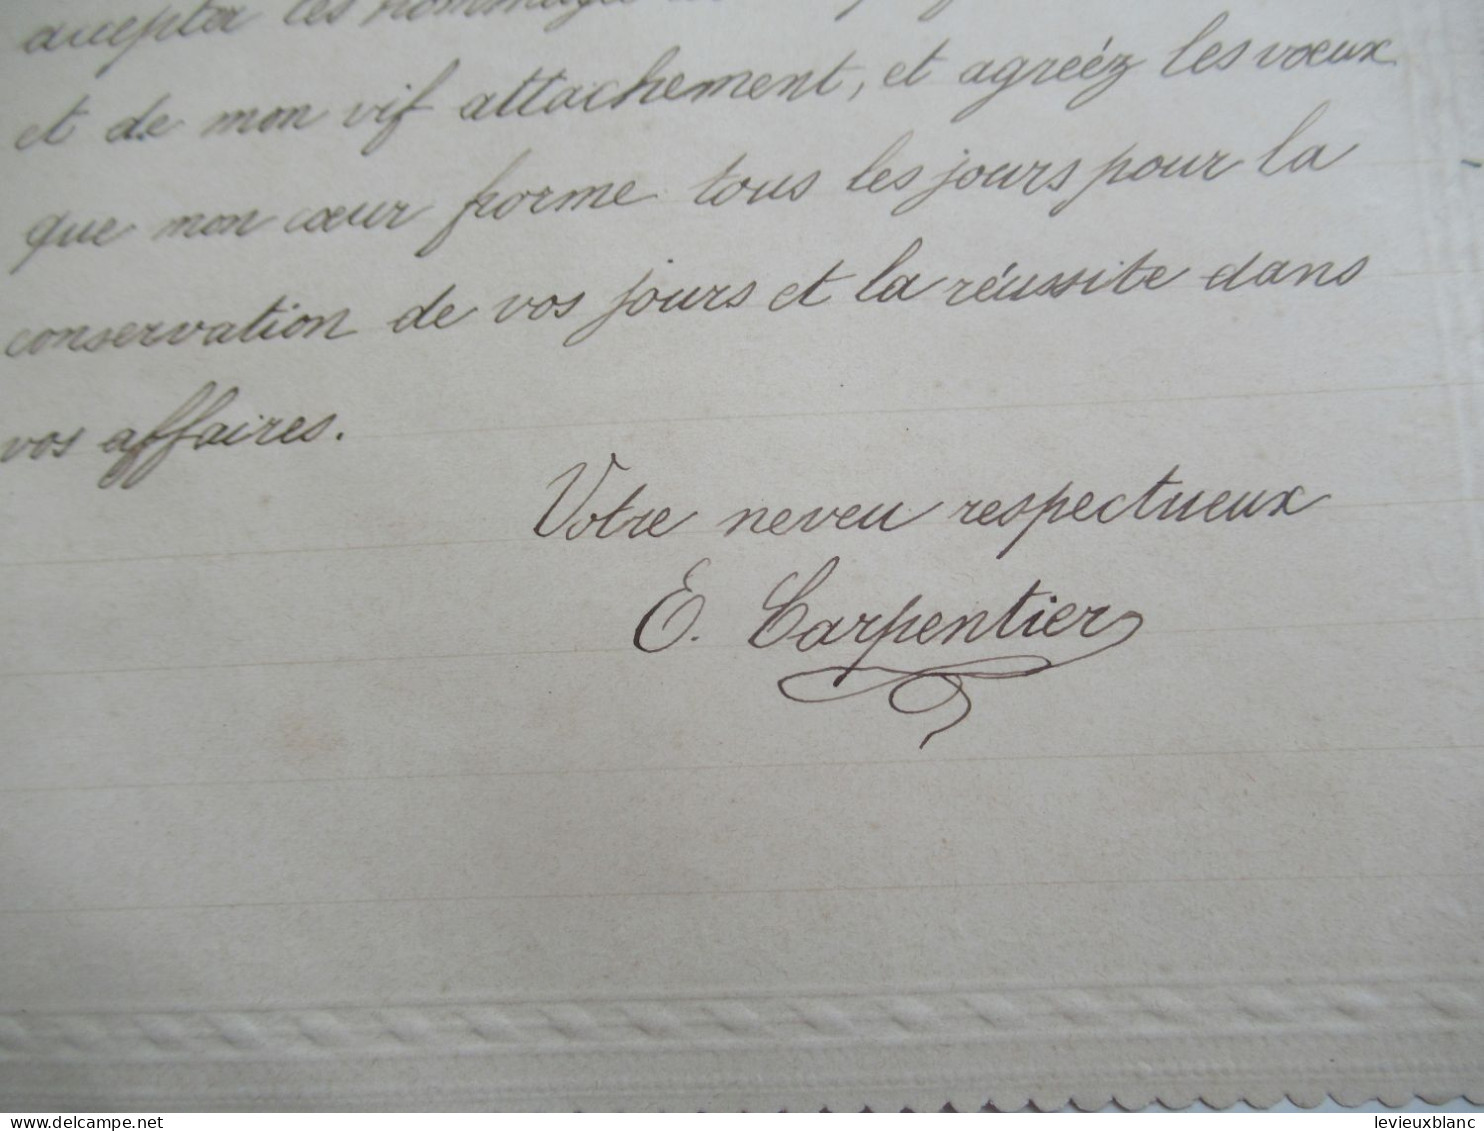 accepter les hommages
et de mon vif attachement, et agréez les vœux
que mon cœur forme tous les jours pour la
conservation de vos jours et la réussite dans
vos affaires.
Votre neveu respectueux
E. Carpentier
www.delcampe.net
levieuxblanc